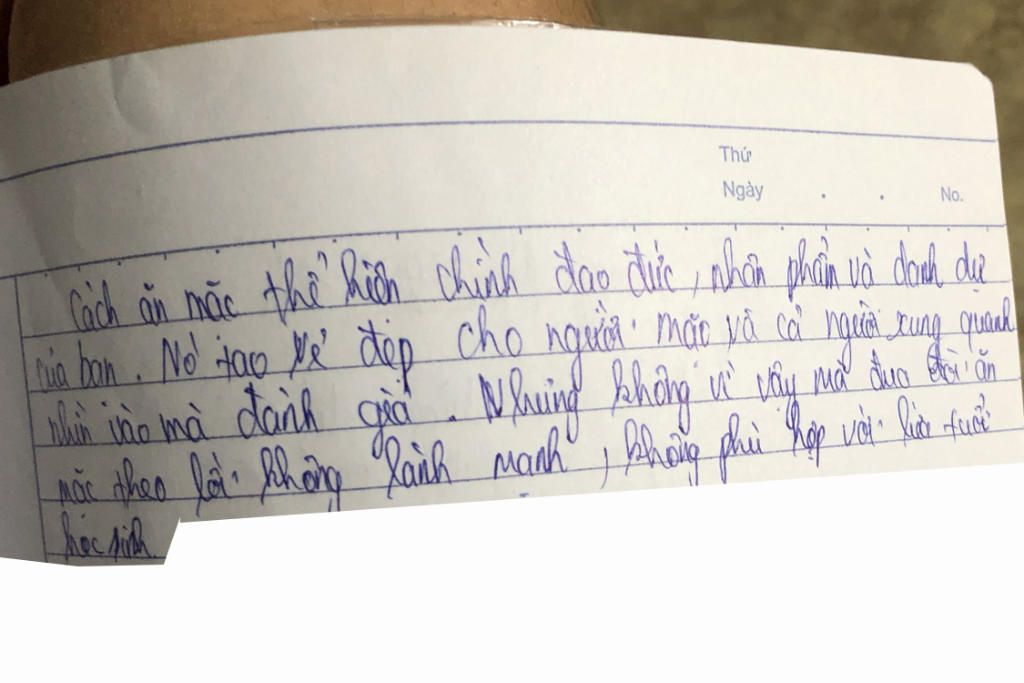 Thứ
Ngày . . No.
Cách ăn mặc thể hiện chính đạo đức, nhân phẩm và danh dự
của bạn. Nó tạo vẻ đẹp cho người mặc và cả người xung quanh
nhìn vào mà đánh giá. Nhưng không vì vậy mà đua đòi ăn
mặc theo lối không lành mạnh, không phù hợp với lứa tuổi
học sinh.